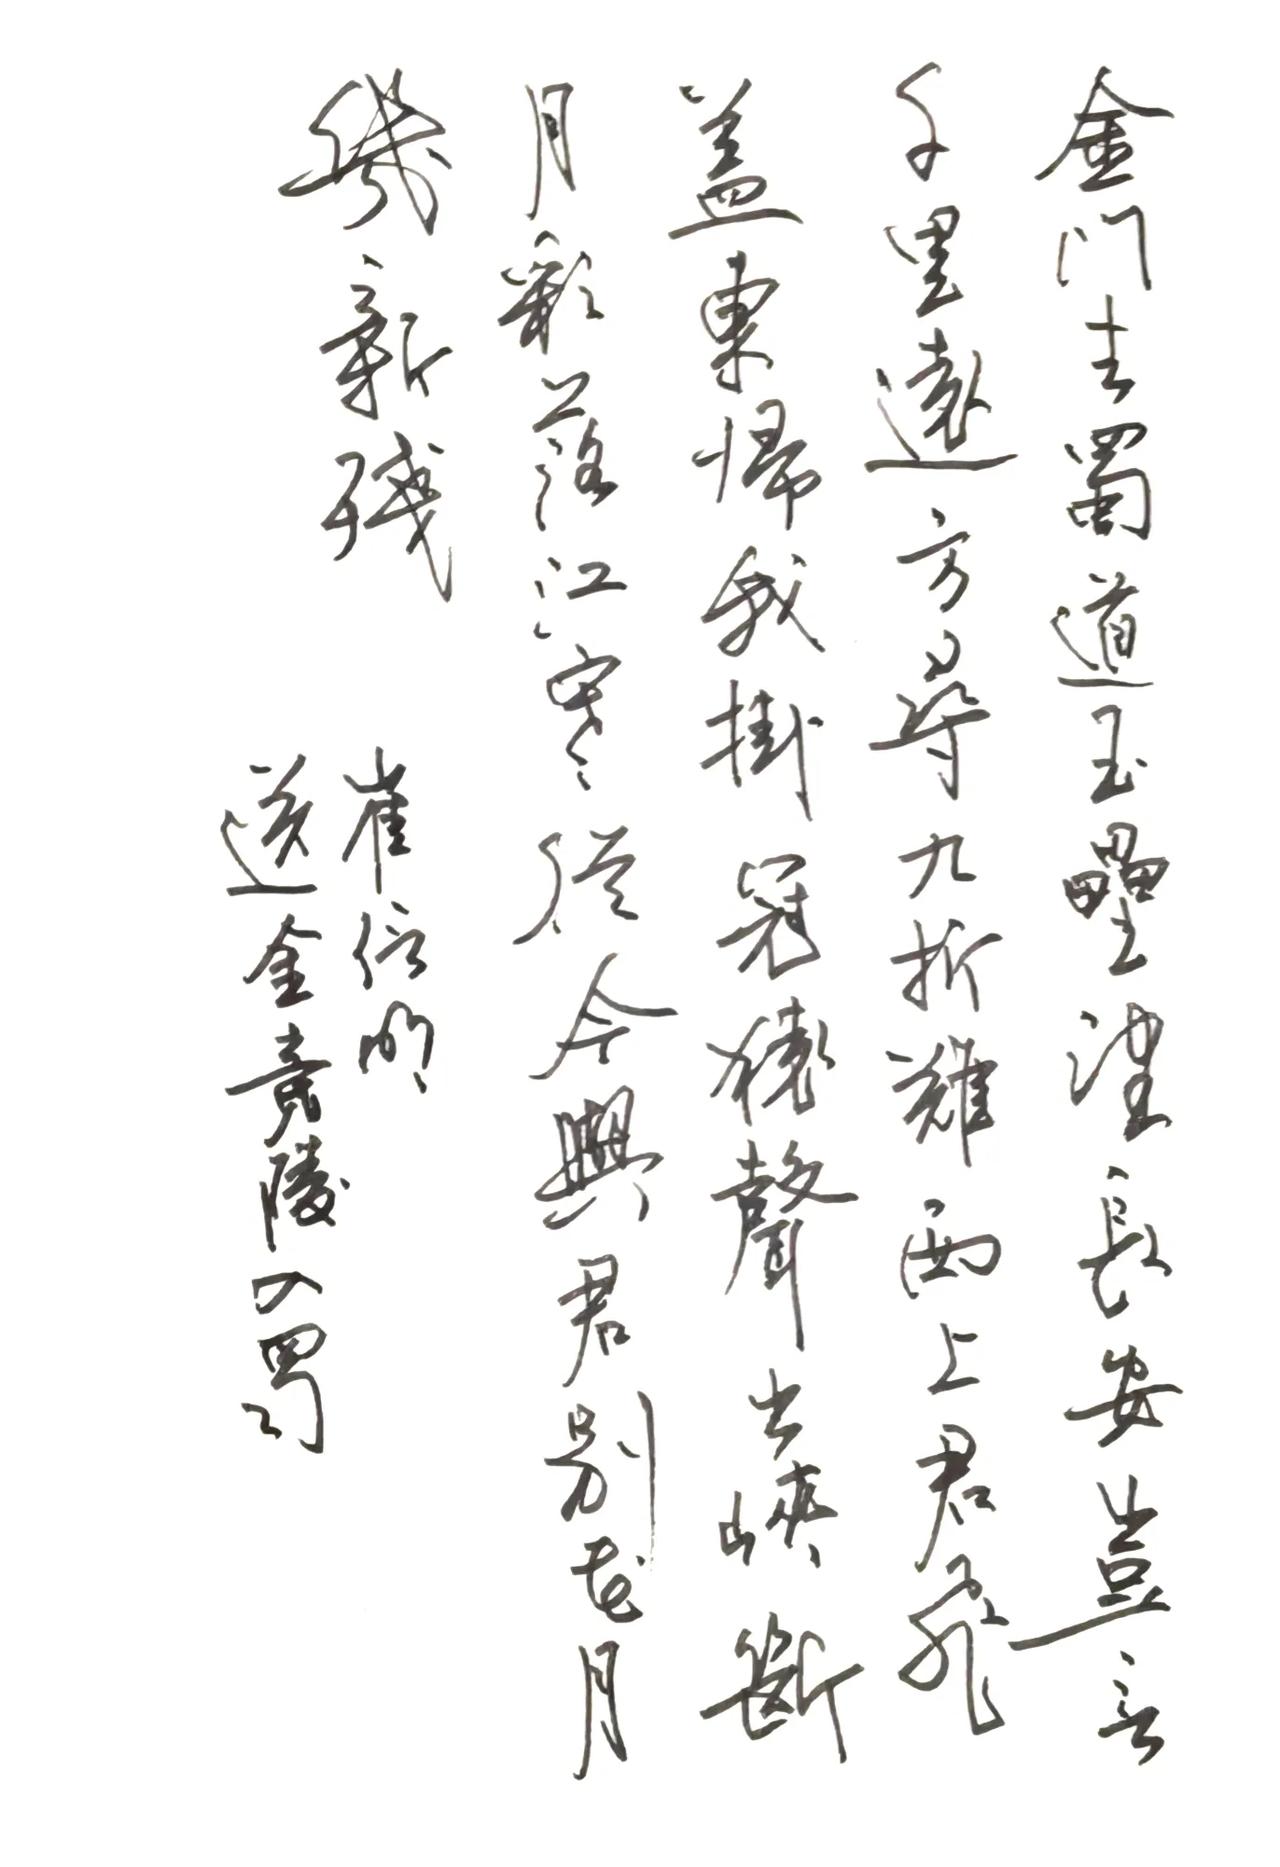 金門去蜀道玉壘望長安豈言
千里遠方尋九折難西上君飛
蓋東歸我掛冠猿聲出峽斷
月彩落江寒從今與君別花月
幾新殘
崔信明
送金竟陵入蜀